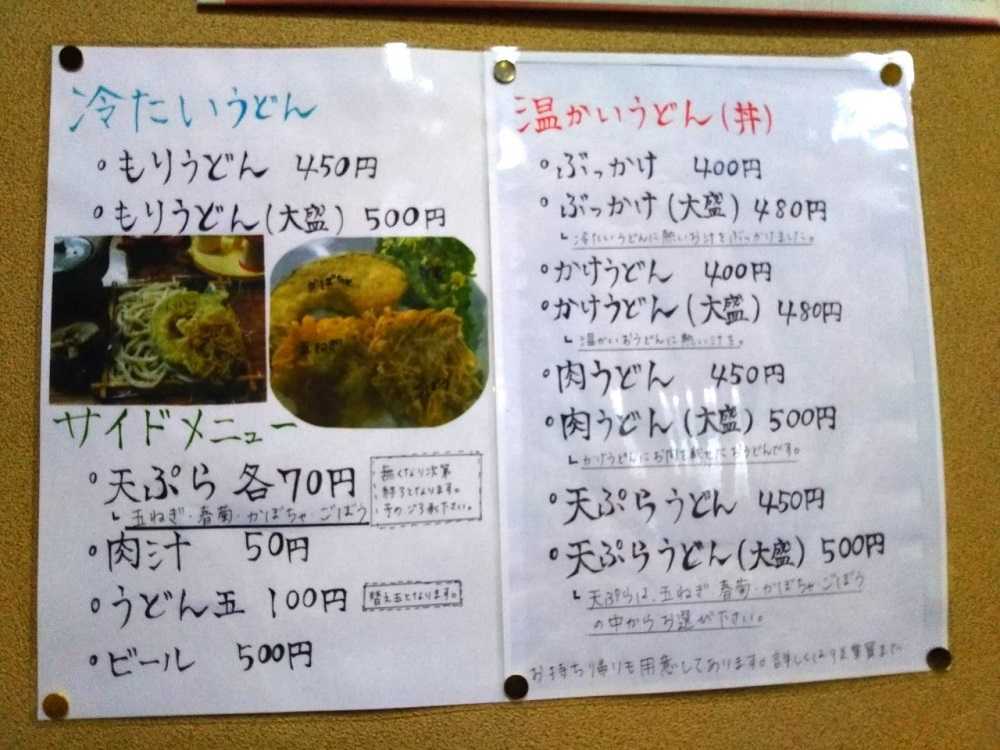 冷たいうどん
・もりうどん 450円
・もりうどん(大盛) 500円
かぼちゃ
玉ねぎ
サイドメニュー
・天ぷら 各70円
玉ねぎ・春菊・かぼちゃ・ごぼう
無くなり次第
終了となります。
予めご了承下さい。
・肉汁 50円
・うどん玉 100円
替え玉となります。
・ビール 500円
温かいうどん(丼)
・ぶっかけ 400円
・ぶっかけ(大盛) 480円
冷たいうどんに熱いお汁をぶっかけました。
・かけうどん 400円
・かけうどん(大盛) 480円
温かいおうどんに熱い汁を。
・肉うどん 450円
・肉うどん(大盛) 500円
かけうどんにお肉を載せたおうどんです。
・天ぷらうどん 450円
・天ぷらうどん(大盛) 500円
天ぷらは、玉ねぎ・春菊・かぼちゃ・ごぼう
の中からお選び下さい。
お持ち帰りも用意してあります。詳しくは